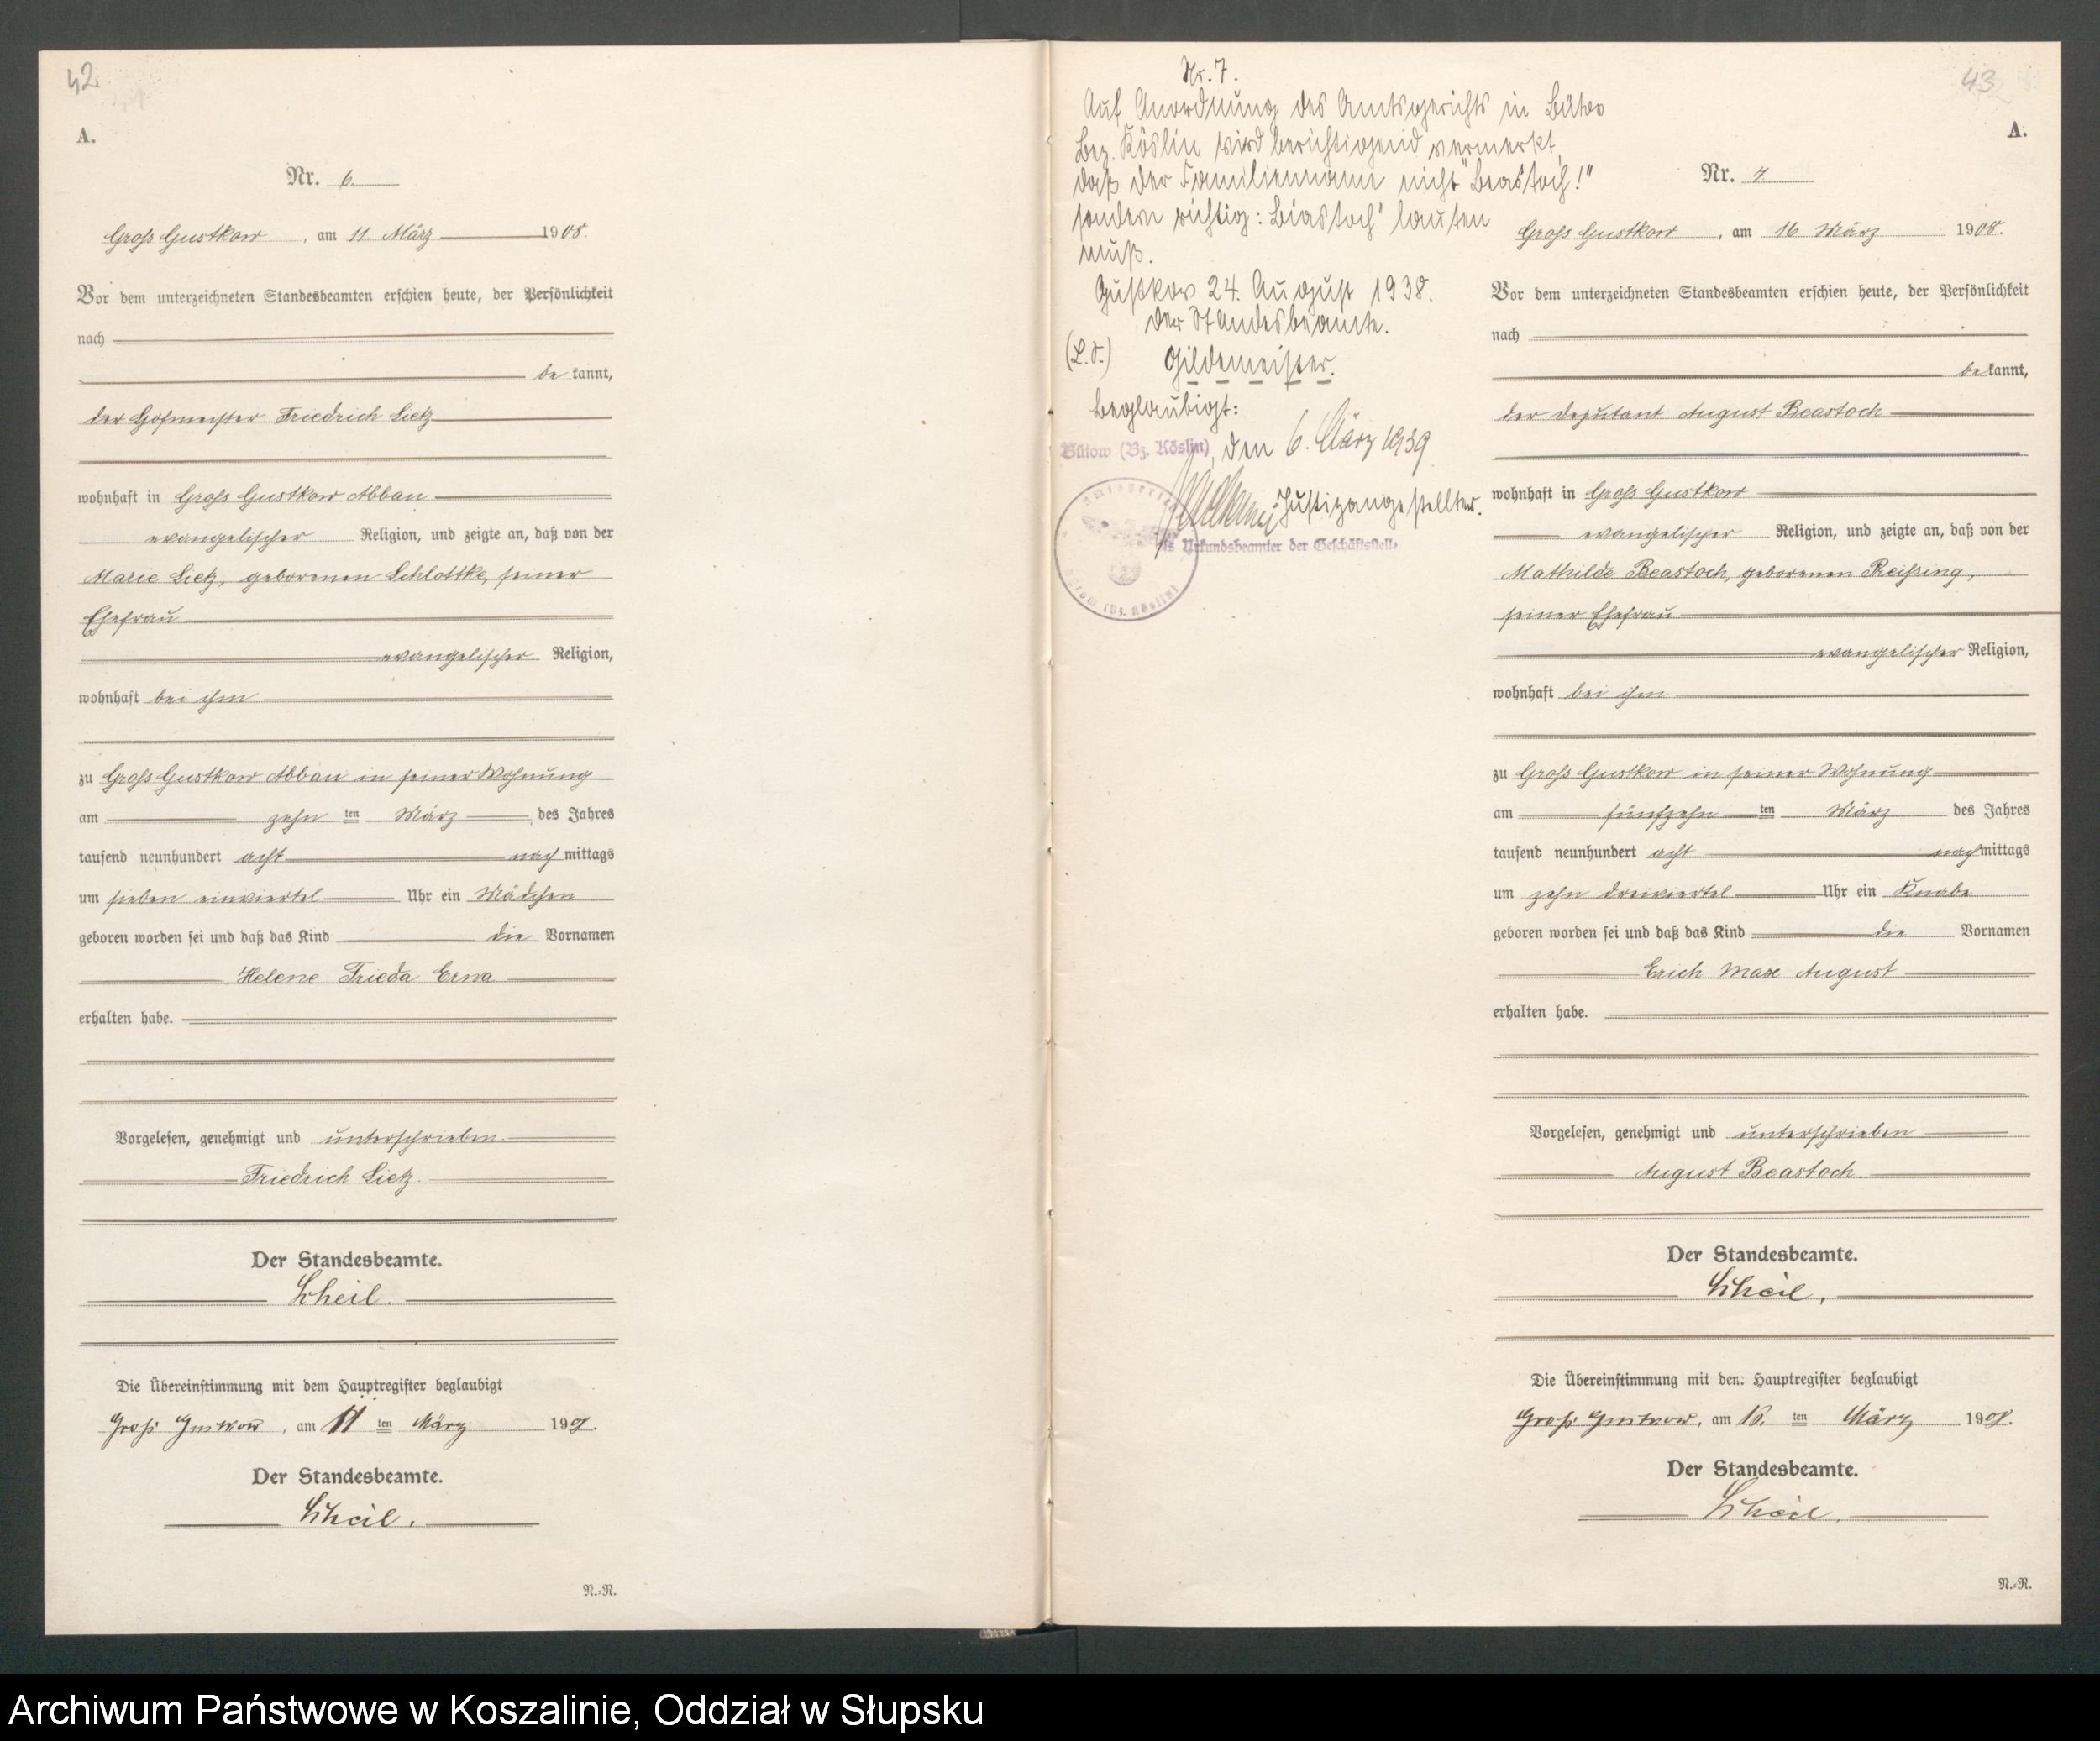 42
A.
Nr. 6.
Groß Gustkow, am 11. März 1908.
Vor dem unterzeichneten Standesbeamten erschien heute, der Persönlichkeit
nach
be kannt,
der Hofmeister Friedrich Lietz
wohnhaft in Groß Gustkow Abbau
evangelischer Religion, und zeigte an, daß von der
Marie Lietz, geborenen Schlottke, seiner
Ehefrau
evangelischer Religion,
wohnhaft bei ihm
zu Groß Gustkow Abbau in seiner Wohnung
am zehn ten März des Jahres
tausend neunhundert acht nach mittags
um sieben einviertel Uhr ein Mädchen
geboren worden sei und daß das Kind die Vornamen
Helene Frieda Erna
erhalten habe.
Vorgelesen, genehmigt und unterschrieben.
Friedrich Lietz.
Der Standesbeamte.
Scheil.
Die Übereinstimmung mit dem Hauptregister beglaubigt
Groß Gustkow, am 11 ten März 1908.
Der Standesbeamte.
Scheil.
N.=N.
Nr. 7.
Auf Anordnung des Amtsgerichts in Bütow
Bez. Köslin wird berichtigend vermerkt,
daß der Familienname nicht "Beastoch!"
sondern richtig: Biastoch" lauten
muß.
Gustkow 24. August 1938.
Der Standesbeamte.
(L.S.) Gildemeister.
Beglaubigt:
Bütow (Bz. Köslin), den 6. März 1939
Justizangestellter.
als Urkundsbeamter der Geschäftsstelle
Amtsgericht
Bütow (Bz. Köslin)
43
A.
Nr. 7.
Groß Gustkow, am 16 März 1908.
Vor dem unterzeichneten Standesbeamten erschien heute, der Persönlichkeit
nach
be kannt,
der Deputant August Beastoch
wohnhaft in Groß Gustkow
evangelischer Religion, und zeigte an, daß von der
Mathilde Beastoch, geborenen Reißing,
seiner Ehefrau
evangelischer Religion,
wohnhaft bei ihm
zu Groß Gustkow in seiner Wohnung
am fünfzehn ten März des Jahres
tausend neunhundert acht nach mittags
um zehn dreiviertel Uhr ein Knabe
geboren worden sei und daß das Kind die Vornamen
Erich Max August
erhalten habe.
Vorgelesen, genehmigt und unterschrieben
August Beastoch.
Der Standesbeamte.
Scheil.
Die Übereinstimmung mit dem Hauptregister beglaubigt
Groß Gustkow, am 16. ten März 1908.
Der Standesbeamte.
Scheil.
N.=N.
Archiwum Państwowe w Koszalinie, Oddział w Słupsku